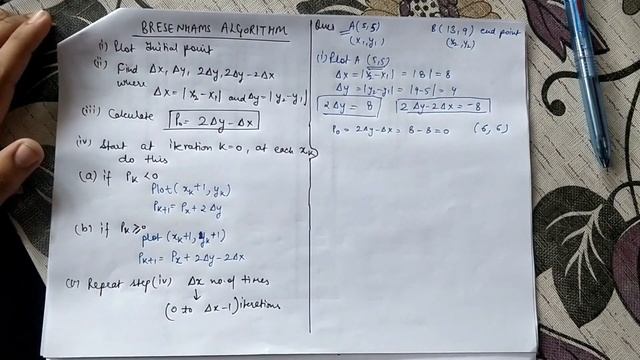 BRESENHAMS ALGORITHM
(i) Plot Initial point
(ii) Find Δx, Δy, 2Δy, 2Δy-2Δx
where
Δx = |x₂-x₁| and Δy = |y₂-y₁|
(iii) Calculate P₀ = 2Δy-Δx
(iv) Start at iteration K=0, at each xₖ
do this
(a) if Pₖ < 0
Plot(xₖ+1, yₖ)
Pₖ₊₁ = Pₖ + 2Δy
(b) if Pₖ ≥ 0
plot (xₖ+1, yₖ+1)
Pₖ₊₁ = Pₖ + 2Δy - 2Δx
(v) Repeat step (iv) Δx no. of times
↓
(0 to Δx-1) iterations
Ques A(5,5) B(13,9) end point
(x₁,y₁) (x₂,y₂)
(i) Plot A (5,5)
Δx = |x₂-x₁| = |8| = 8
Δy = |y₂-y₁| = |9-5| = 4
2Δy = 8 2Δy-2Δx = -8
P₀ = 2Δy-Δx = 8-8 = 0 (6,6)